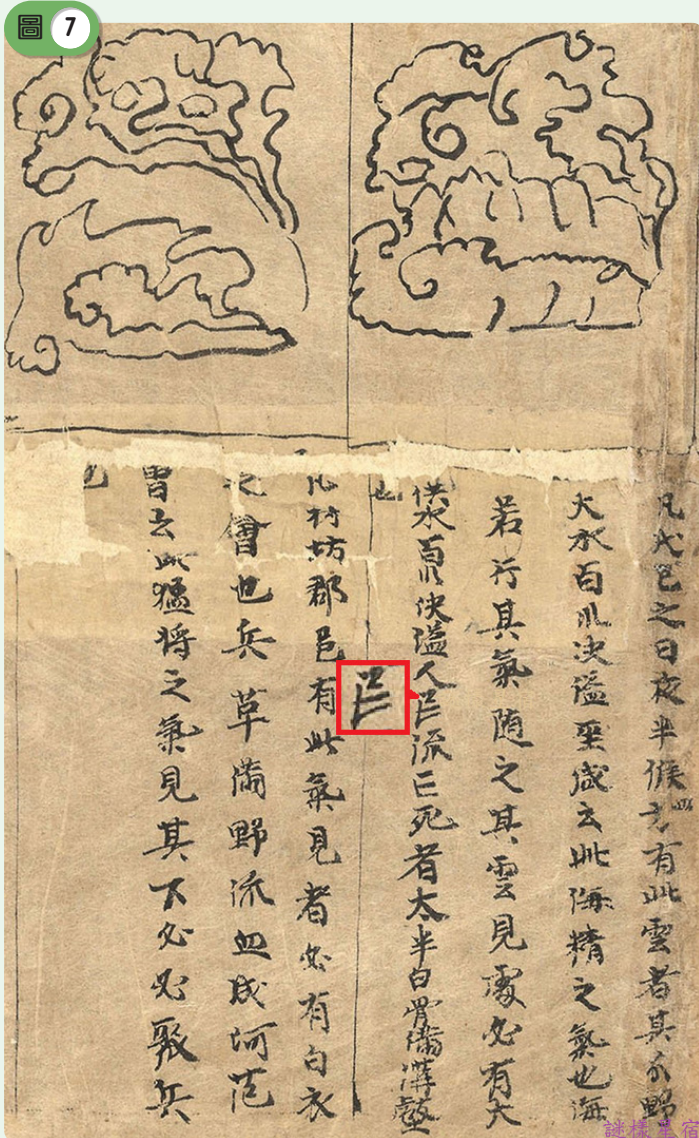 圖 7
凡戊己之日夜半候有此雲者其分野
大水百川決溢聖歲云此海精之氣也海
若行其氣隨之其雲見處必有大
洪水百川決溢人流亡死者太半白骨滿溝壑
也
凡村坊郡邑有此氣見者必有白衣
之會也兵草滿野流血成河范
曾云此猛將之氣見其下必必聚兵
也
謎樣星宿